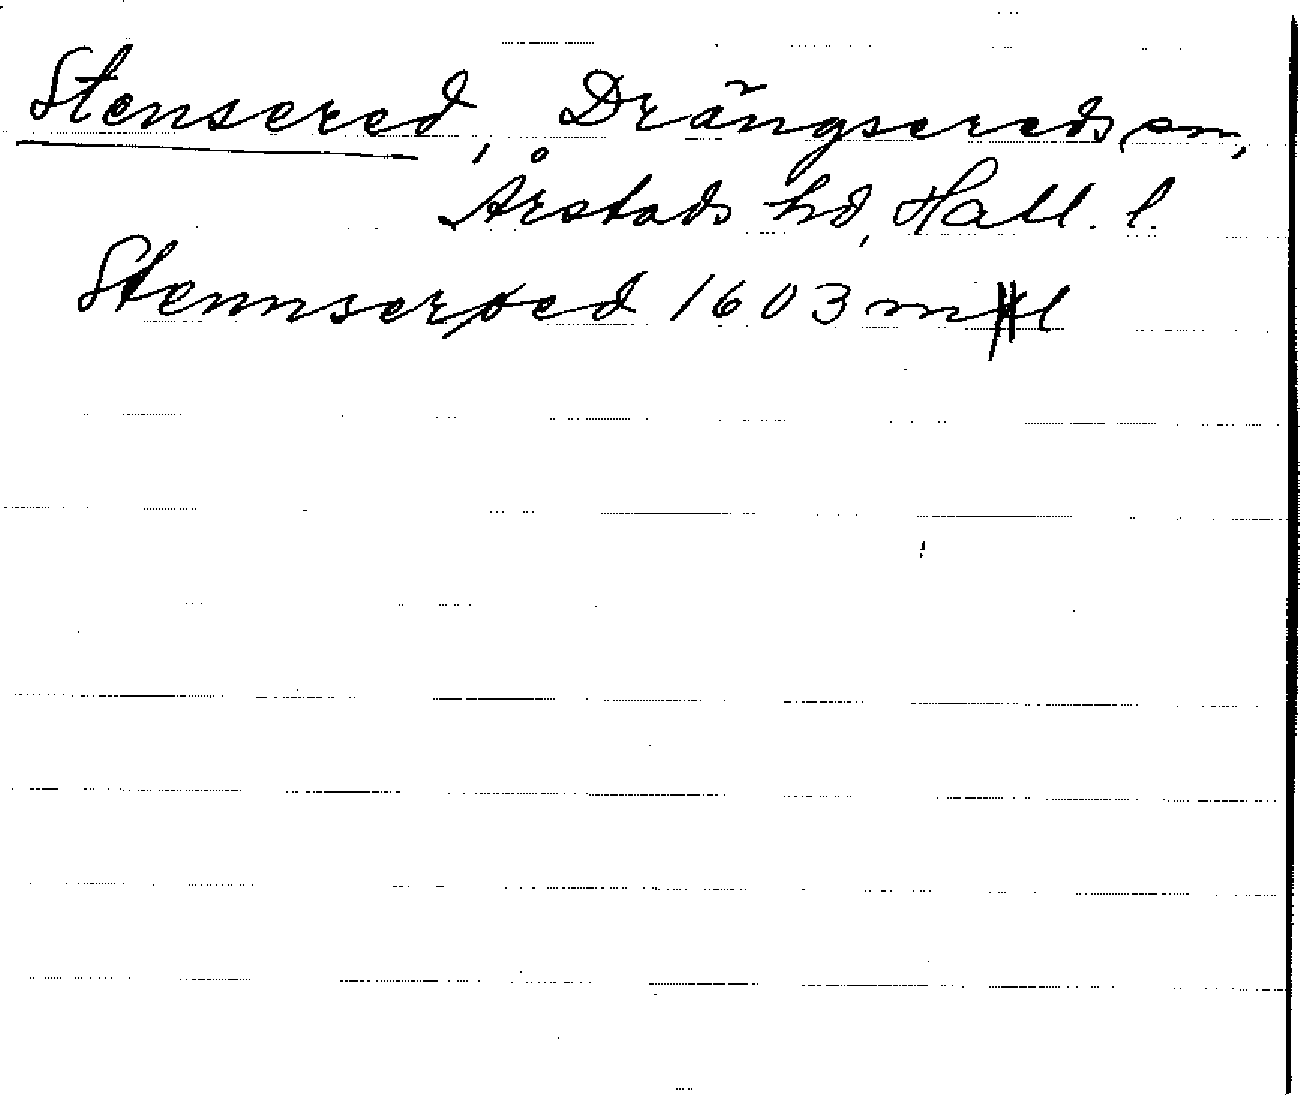 Stensered, Drängsereds sn,
Årstads hd, Hall. l.
Stennserød 1603 mtl